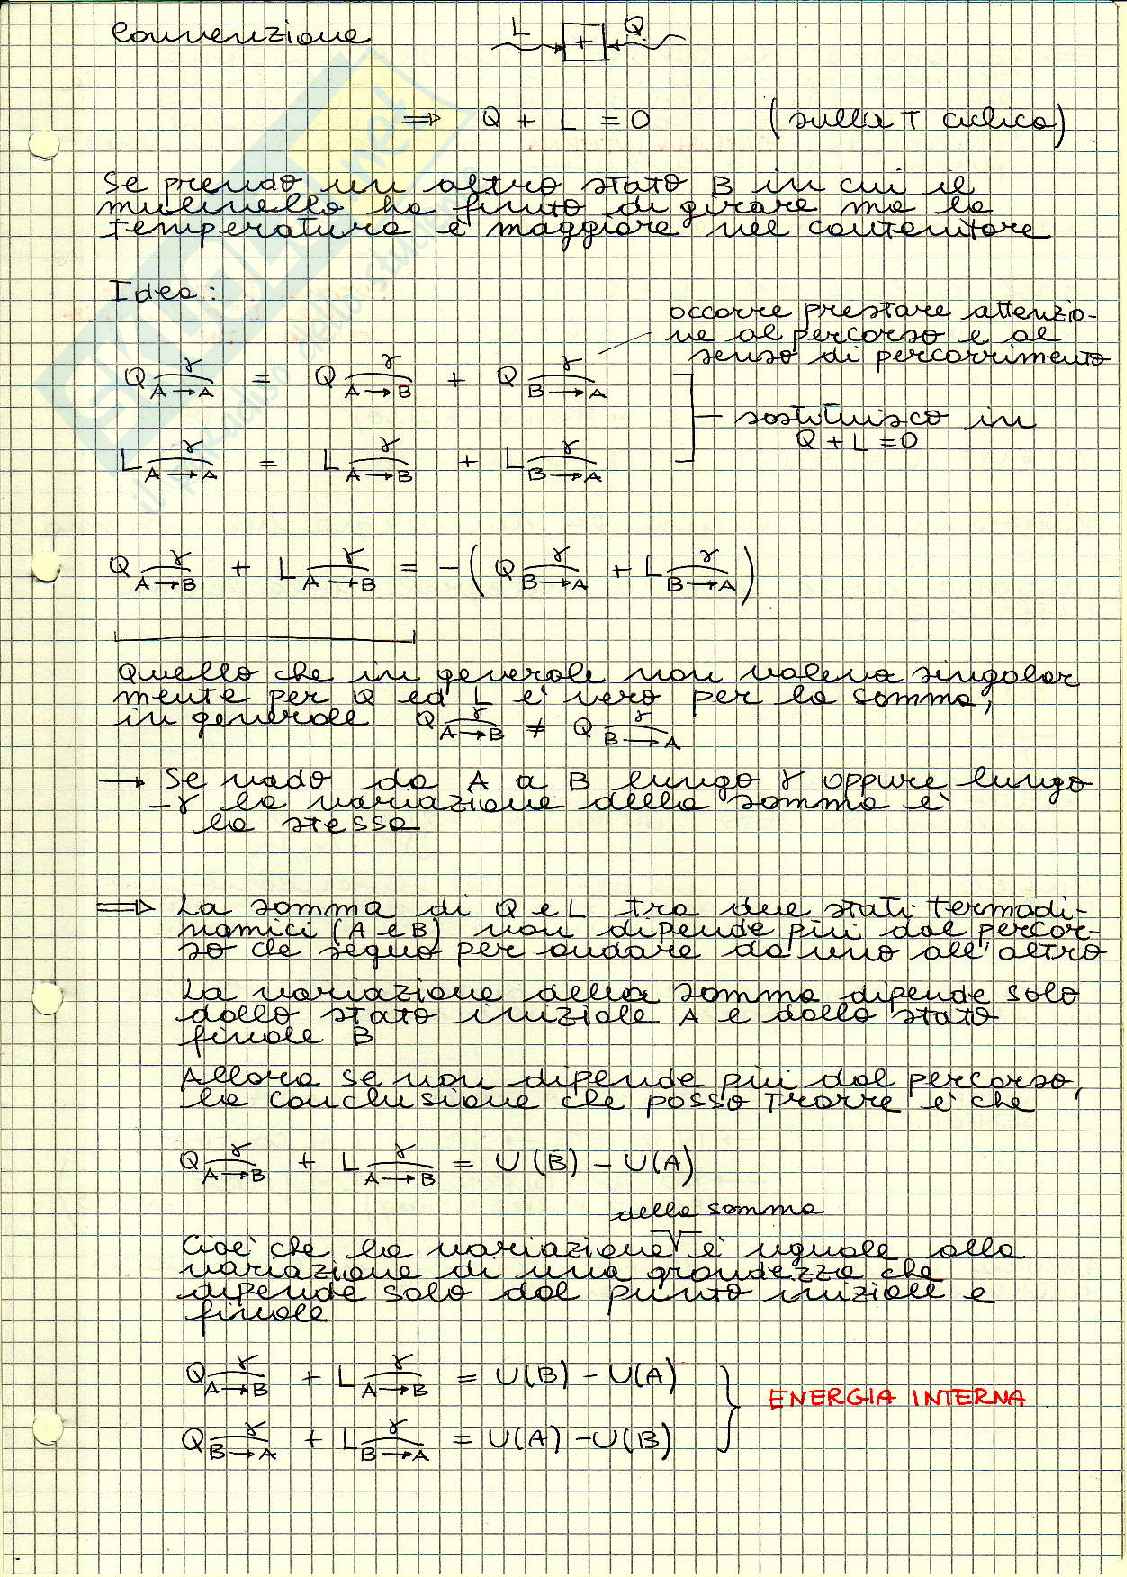 Convenzione
L + Q
⇒ Q + L = 0 (sulla T ciclica)
Se prendo un altro stato B in cui il
mulinello ha finito di girare ma la
temperatura è maggiore nel contenitore
Idea:
occorre prestare attenzio-
ne al percorso e al
senso di percorrimento
Q γ A→A = Q γ A→B + Q γ B→A
sostituisco in
Q + L = 0
L γ A→A = L γ A→B + L γ B→A
Q γ A→B + L γ A→B = - ( Q γ B→A + L γ B→A )
Quello che in generale non valeva singolar
mente per Q ed L è vero per la somma,
in generale Q γ A→B ≠ Q γ B→A
→ Se vado da A a B lungo γ oppure lungo
-γ la variazione della somma è
la stessa
⇒ La somma di Q e L tra due stati termodi-
namici (A e B) non dipende più dal percor-
so che seguo per andare da uno all'altro
La variazione della somma dipende solo
dallo stato iniziale A e dallo stato
finale B
Allora se non dipende più dal percorso,
la conclusione che posso trarre è che
Q γ A→B + L γ A→B = U(B) - U(A)
della somma
Cioè che la variazione è uguale alla
variazione di una grandezza che
dipende solo dal punto iniziale e
finale
Q γ A→B + L γ A→B = U(B) - U(A)
ENERGIA INTERNA
Q γ B→A + L γ B→A = U(A) - U(B)